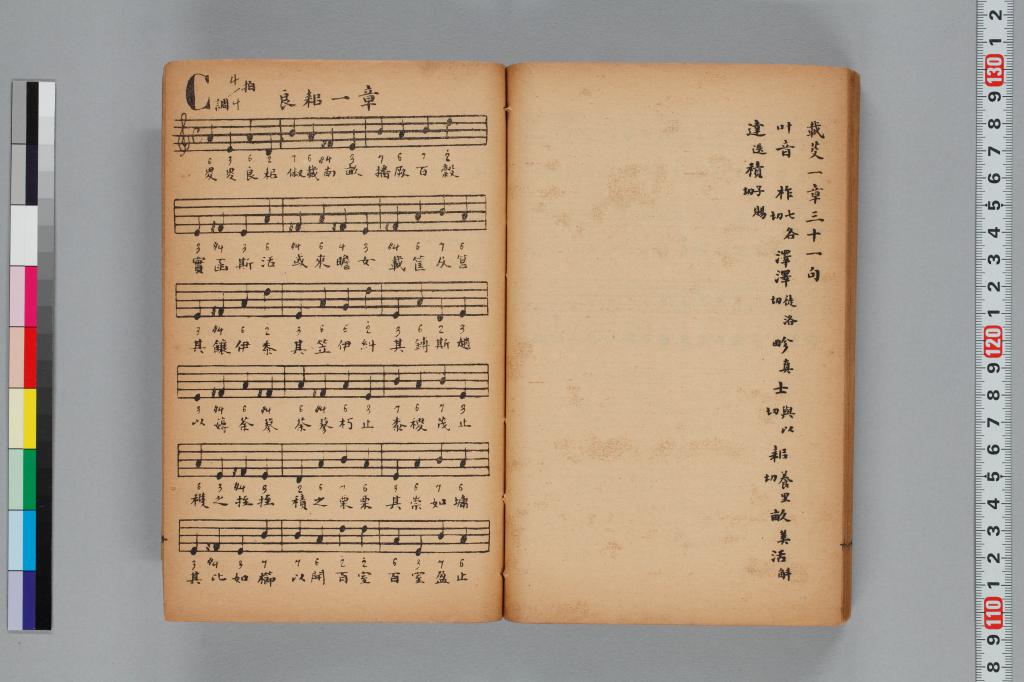 C調 4/4拍 良耜一章
6 3 6 2 7 6 #4 3 7 6 7 2
畟畟良耜 俶載南畝 播厥百穀
3 #4 3 6 #4 6 4 3 #4 6 7 6
實函斯活 或來瞻女 載筐及筥
3 #4 6 2 3 6 6 2 3 6 2 3
其饟伊黍 其笠伊糾 其鎛斯趙
3 #4 6 #4 6 #4 6 3 7 6 7 3
以薅荼蓼 荼蓼朽止 黍稷茂止
6 3 #4 3 2 6 7 6 3 6 7 6
穫之挃挃 積之栗栗 其崇如墉
3 #4 3 7 7 6 2 2 6 3 7 6
其比如櫛 以開百室 百室盈止
載芟一章三十一句
叶音 柞七各切 澤澤徒洛切 畛真 士與以切 耜養里切 畝美 活
達迭 積子賜切